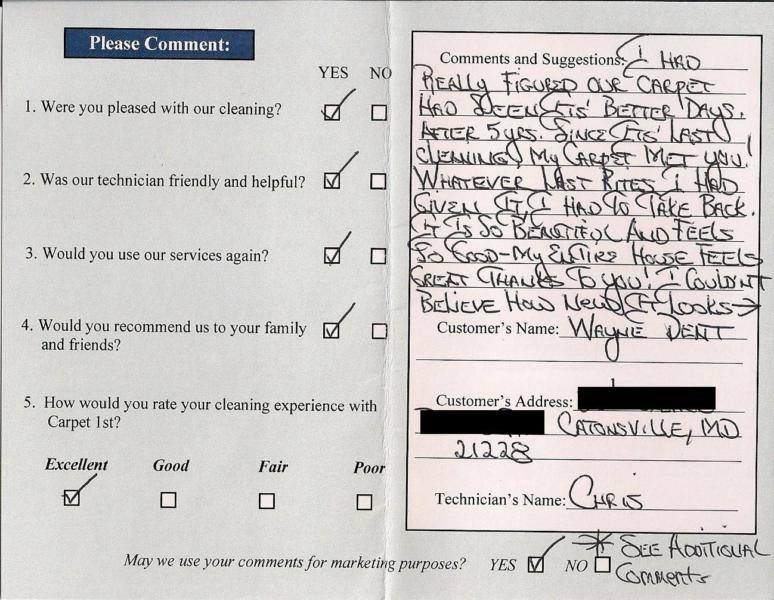 Please Comment:
YES NO
1. Were you pleased with our cleaning?
2. Was our technician friendly and helpful?
3. Would you use our services again?
4. Would you recommend us to your family
and friends?
5. How would you rate your cleaning experience with
Carpet 1st?
Excellent Good Fair Poor
Comments and Suggestions: I HAD
REALLY FIGURED OUR CARPET
HAD SEEN ITS' BETTER DAYS.
AFTER 5 YRS. SINCE ITS' LAST
CLEANING, MY CARPET MET YOU!
WHATEVER LAST RITES I HAD
GIVEN IT, I HAD TO TAKE BACK.
IT IS SO BEAUTIFUL AND FEELS
SO GOOD-MY ENTIRE HOUSE FEELS
GREAT THANKS TO YOU! I COULDN'T
BELIEVE HOW NEW IT LOOKS→
Customer's Name: WAYNE DENT
Customer's Address:
CATONSVILLE, MD
21228
Technician's Name: CHRIS
May we use your comments for marketing purposes? YES NO
* SEE ADDITIONAL
COMMENTS